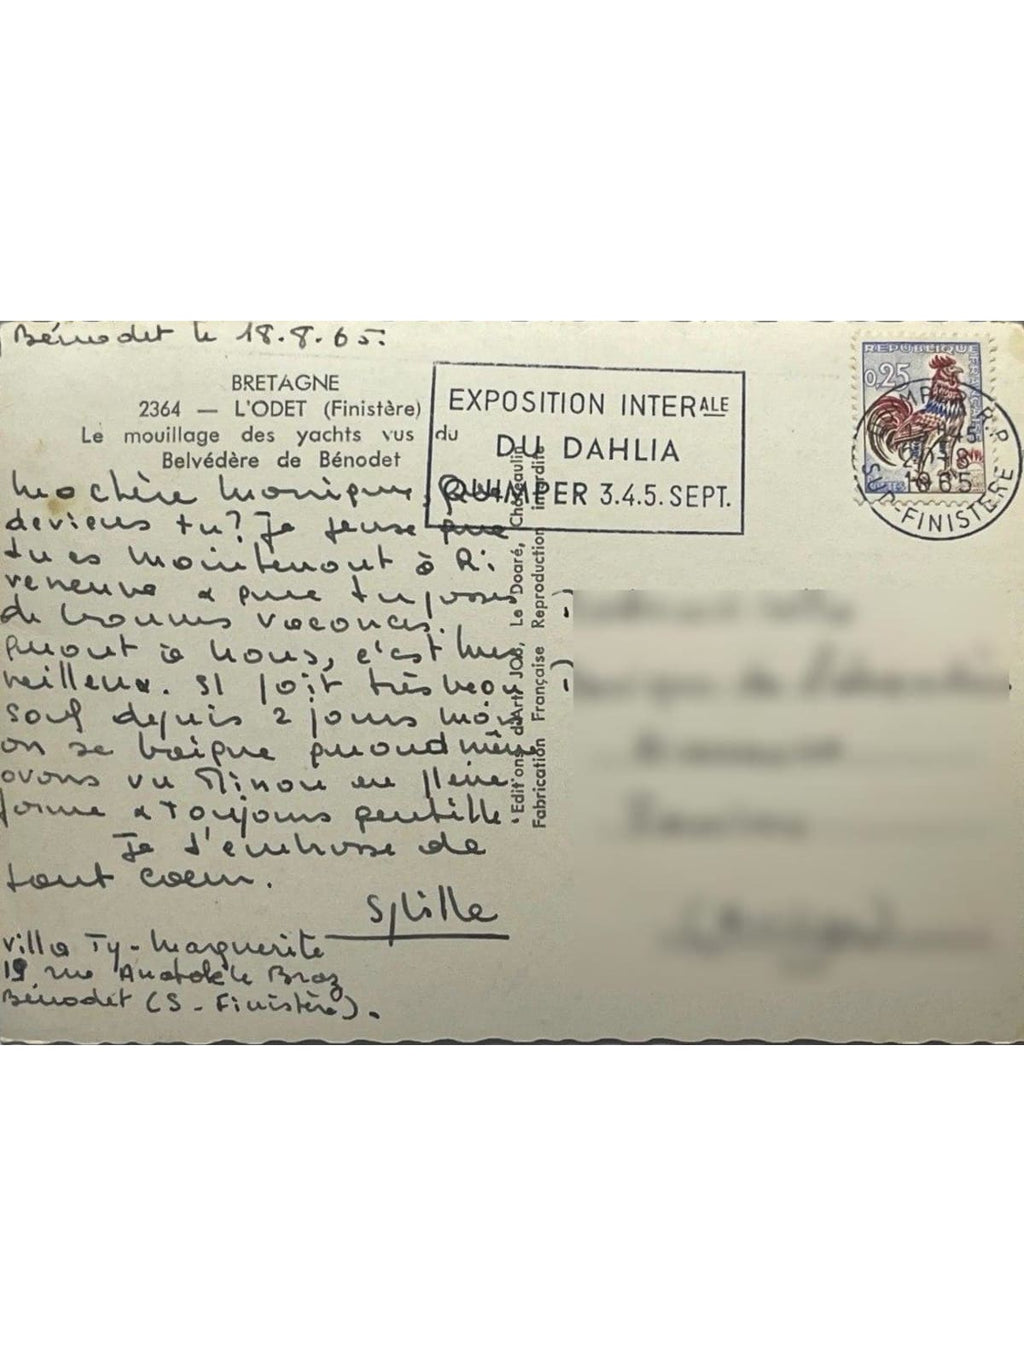 Bénodet le 18.8.65.
BRETAGNE
2364 — L'ODET (Finistère)
Le mouillage des yachts vus du
Belvédère de Bénodet
EXPOSITION INTERALE
DU DAHLIA
QUIMPER 3.4.5. SEPT.
REPUBLIQUE FRANÇAISE
0,25
1965
SUD-FINISTERE
Ma chère Monique, Que
deviens tu? Je pense que
tu es maintenant à Ri
veneuve & que tu passes
de bonnes vacances.
Quant à nous, c'est mer
veilleux. Il fait très beau
sauf depuis 2 jours mais
on se baigne quand même
avons vu Minou en pleine
forme & toujours gentille.
Je t'embrasse de
tout coeur.
Villa Ty-Marguerite
19 rue Anatole le Braz
Bénodet (S-Finistère).
Editions d'Art JOS, Le Doaré, Chateaulin
Fabrication Française Reproduction interdite